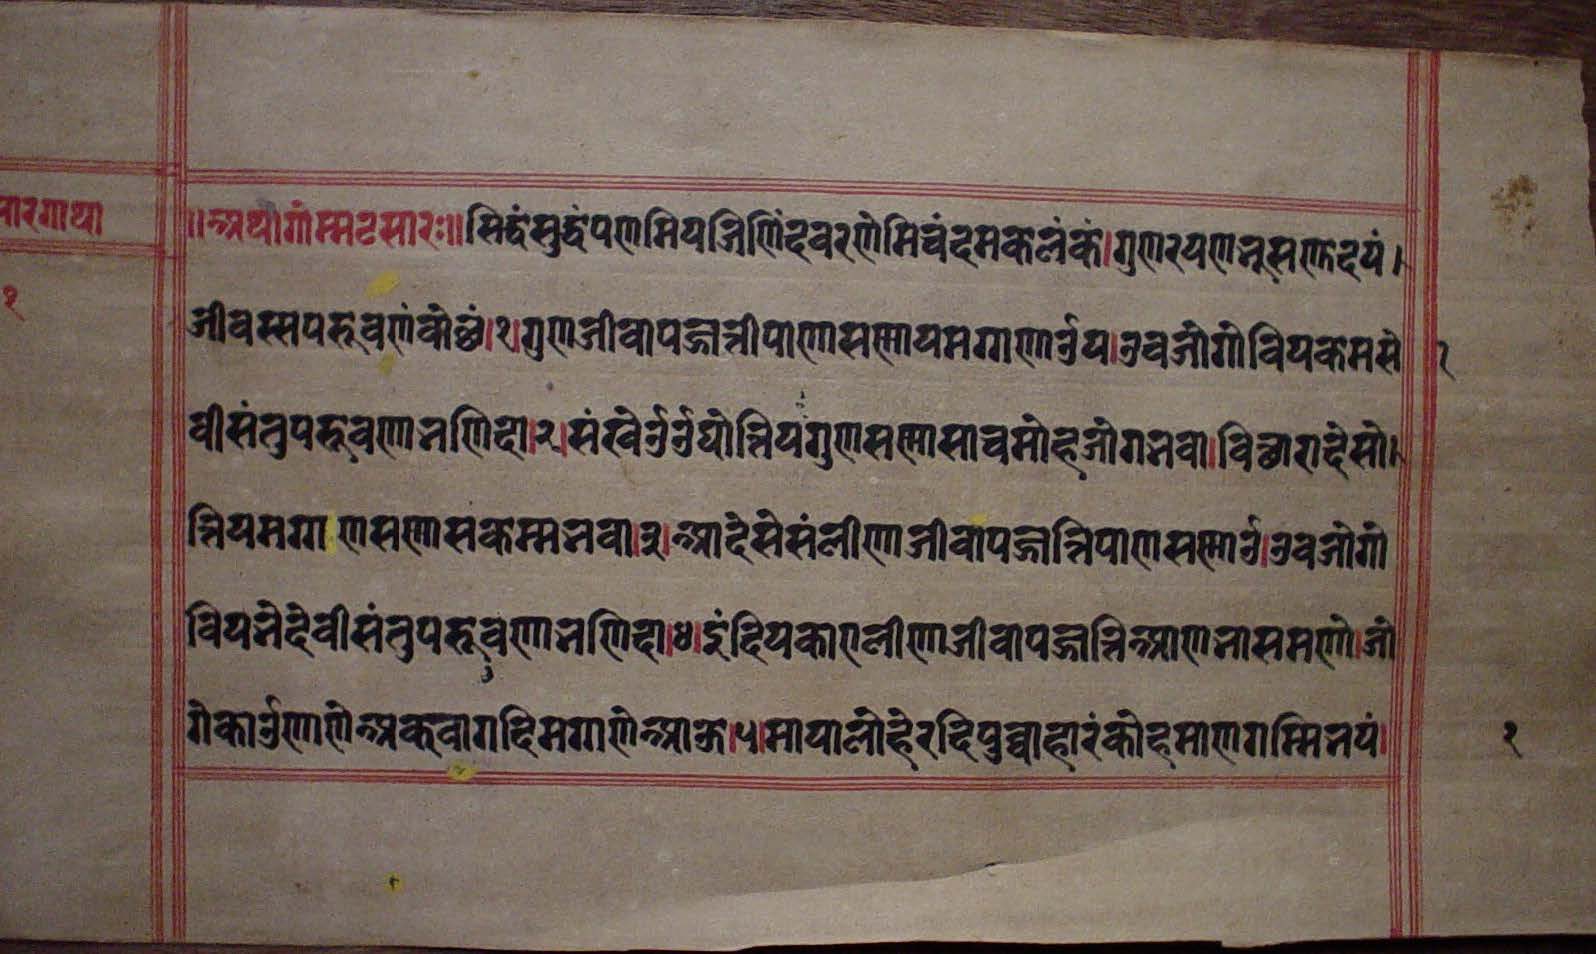 सारगाथा
१
॥अथ गोंम्मटसारः॥सिद्धंसुद्धंपणमियजिणिंदवरणेमिचंदमकलंकं।गुणरयणभूसणुदयं।
जीवस्सपरूवणंवोछं।१।गुणजीवापज्जत्तीपाणासण्णायमगाणाउय।उवजोगोवियकमसो
वीसंतुपरूवणाभणिदा।२।संखेउउघोत्तियगुणसण्णासाचमोहजोगभवा।विछारादेसो।
त्तियमगाणसण्णासकम्मभवा।३।आदेसेसंलीणाजीवापज्जत्तिपाणसण्णाउ।उवजोगो
वियभेदेवीसंतुपरूवणाभणिदा।४।इंदियकाएलीणाजीवापज्जत्तिआणभासमणो।जो
गेकाउणाणेअकवागदिमगाणेआऊ।५।मायालोहेरदिपुव्वाहारंकोहमाणगम्मिभयं।
१
१